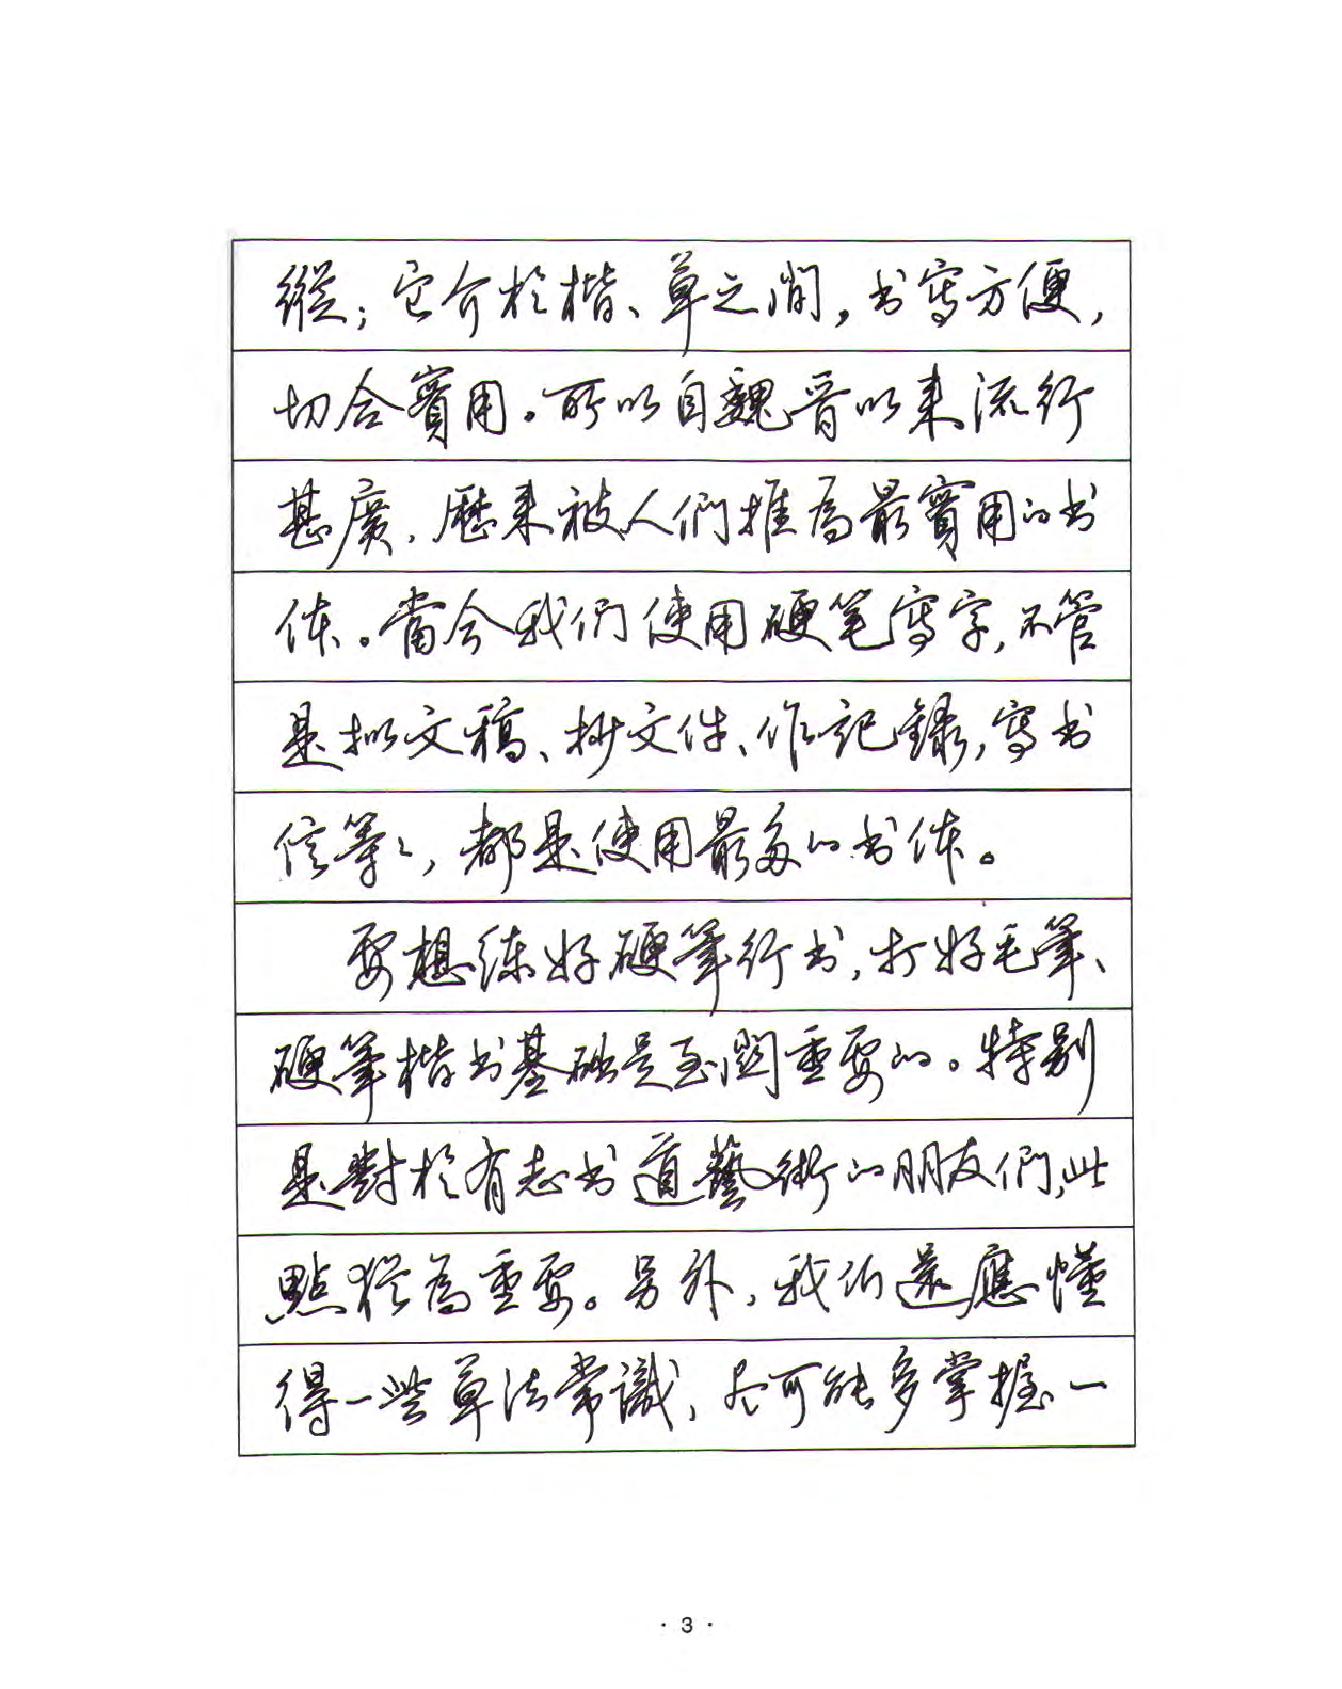 縱；它介於楷、草之間，书寫方便，
切合實用。所以自魏晋以来流行
甚廣，歷来被人們推為最實用的书
体。當今我們使用硬笔寫字，不管
是拟文稿、抄文件、作記録，寫书
信等々，都是使用最多的书体。
要想练好硬筆行书，打好毛筆、
硬筆楷书基础是至關重要的。特别
是對於有志书道藝術的朋友們，此
點猶為重要。另外，我们還應懂
得一些草法常識，尽可能多掌握一
· 3 ·